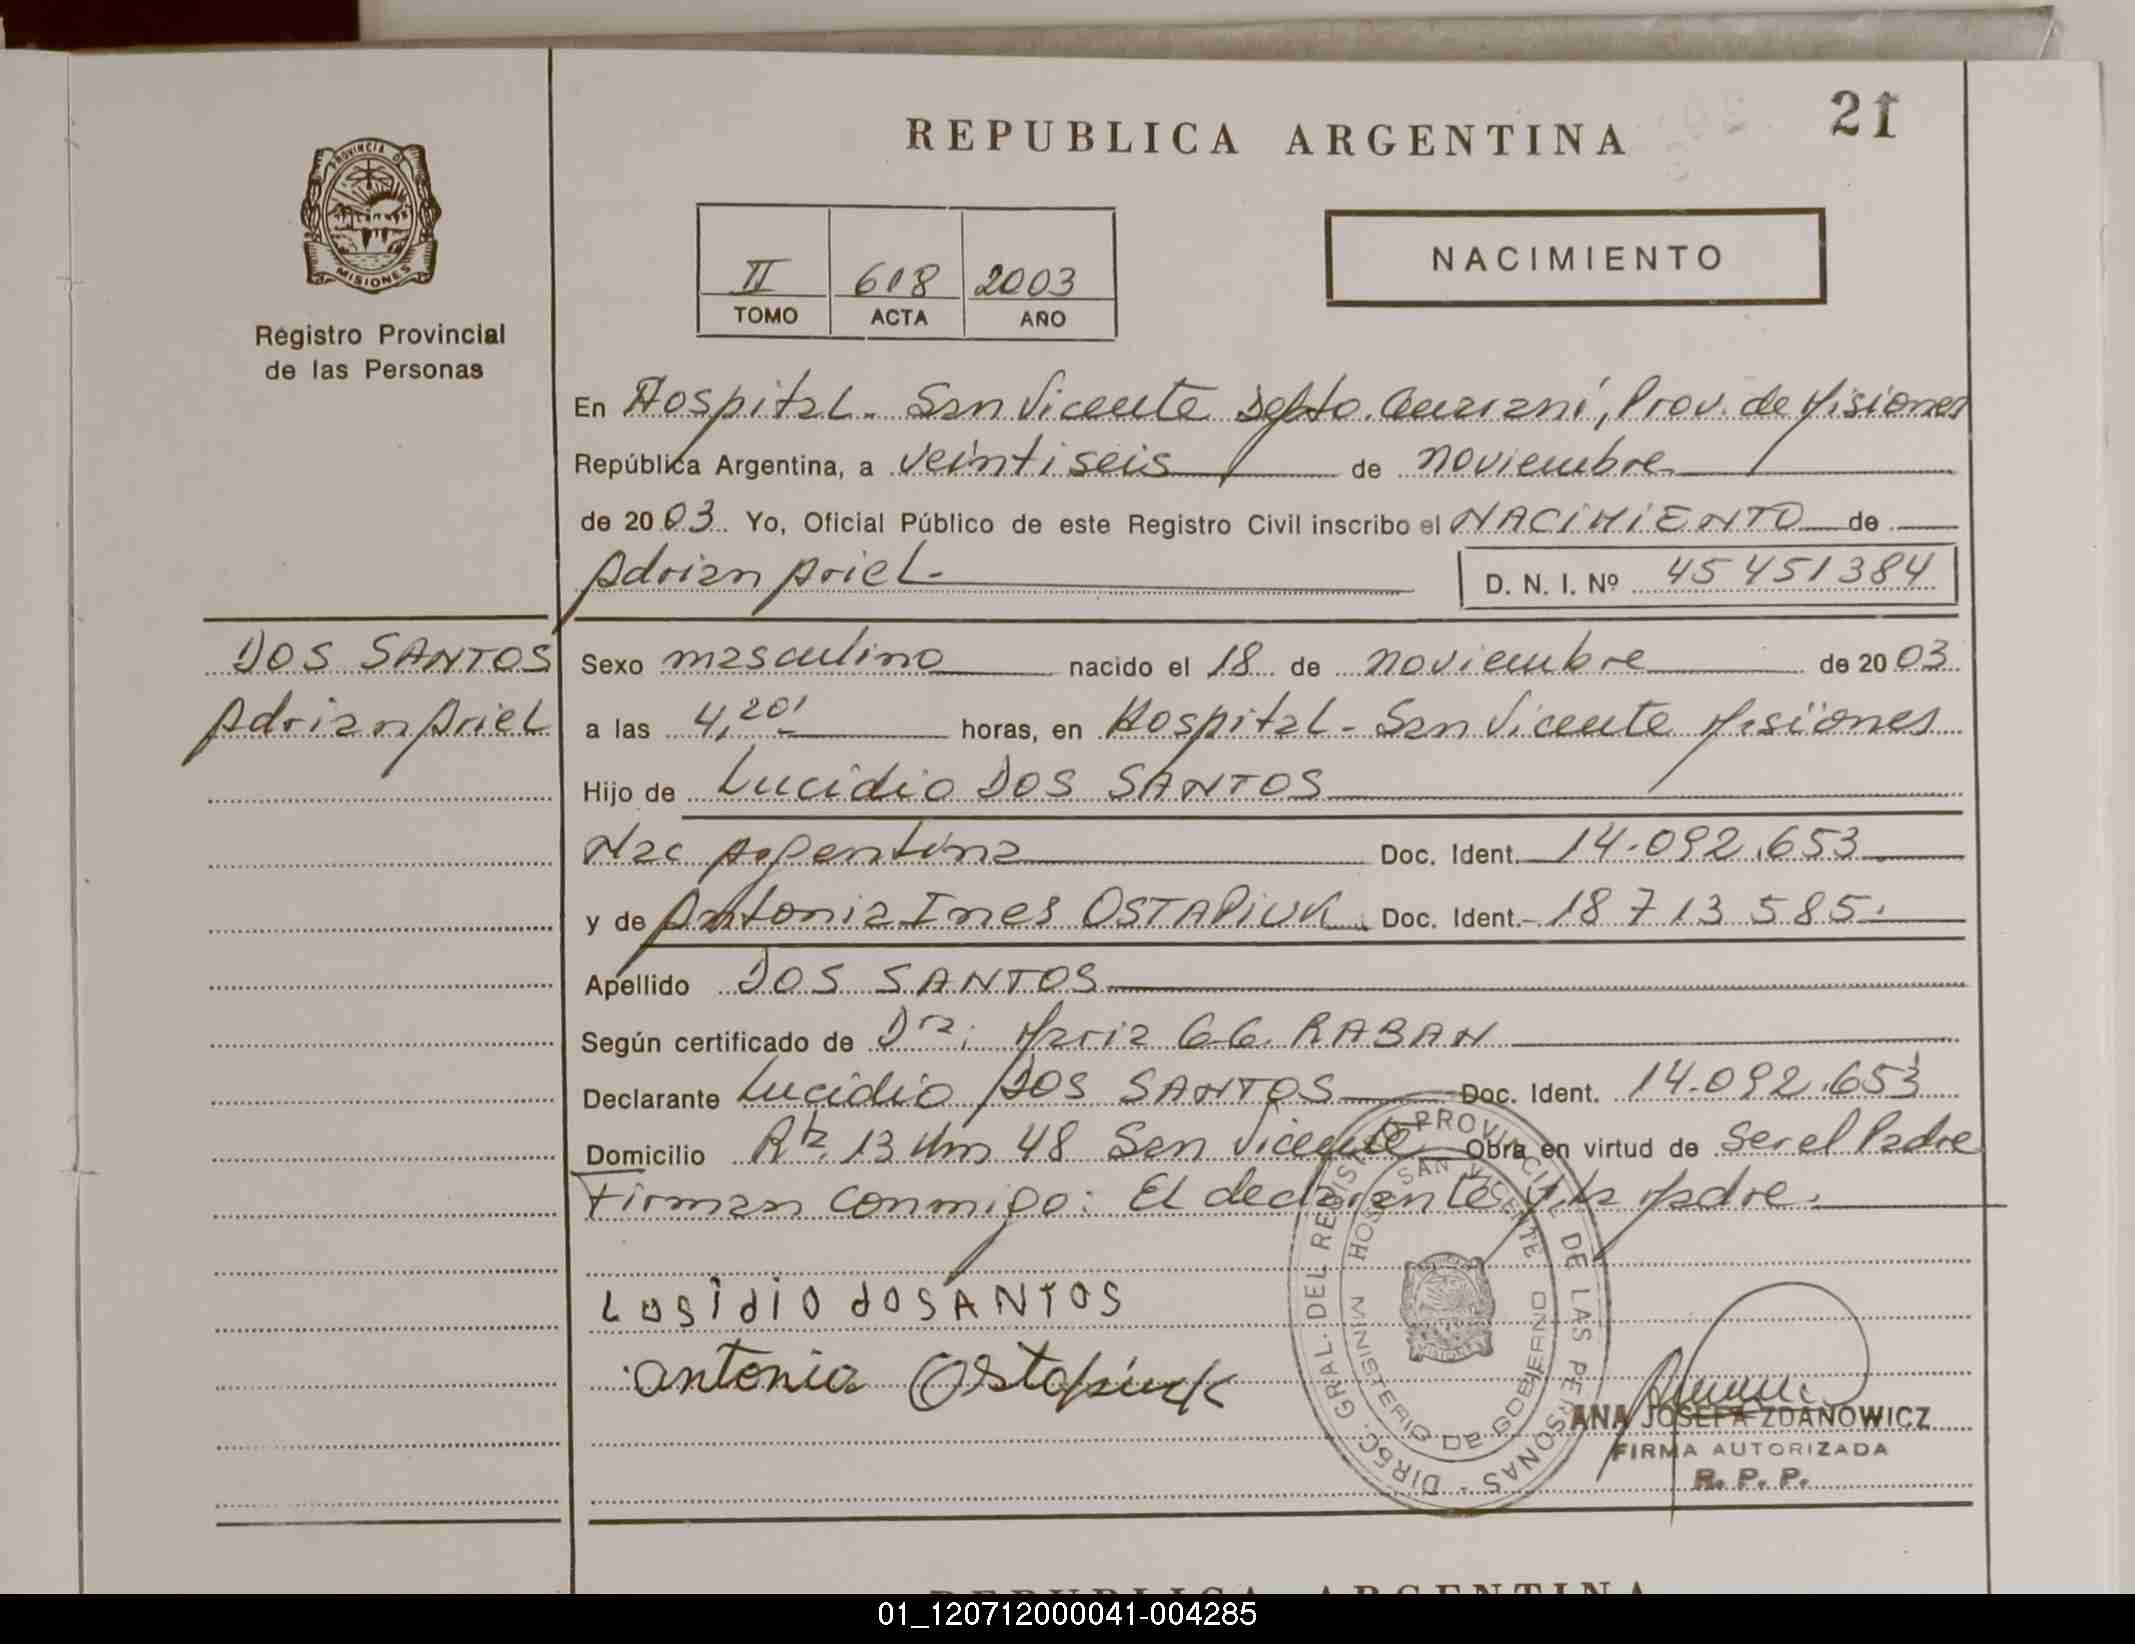 21
REPUBLICA ARGENTINA
PROVINCIA DE
MISIONES
Registro Provincial
de las Personas
II 618 2003
TOMO ACTA AÑO
NACIMIENTO
En Hospital - San Vicente Depto. Guaraní, Prov. de Misiones
República Argentina, a veintiseis de noviembre
de 2003 Yo, Oficial Público de este Registro Civil inscribo el NACIMIENTO de
Adrian Ariel - D. N. I. Nº 45451384
DOS SANTOS
Adrian Ariel
Sexo masculino nacido el 18 de noviembre de 2003
a las 4,20' horas, en Hospital - San Vicente Misiones
Hijo de Lucidio DOS SANTOS
Nac Argentina Doc. Ident. 14.092.653
y de Antonia Ines OSTAPIUK Doc. Ident.- 18 713 585.
Apellido DOS SANTOS
Según certificado de Dra: Maria GG. RABAN
Declarante Lucidio DOS SANTOS Doc. Ident. 14.092.653
Domicilio Rta. 13 Km 48 San Vicente Obra en virtud de Ser el Padre
Firman conmigo: El declarante y la Madre.
LUSIDIO dOSANTOS
antonia Ostapiuk
DIREC. GRAL. DEL REGISTRO PROVINCIAL DE LAS PERSONAS -
HOSP. SAN VICENTE
MINISTERIO DE GOBIERNO
ANA JOSEFA ZDANOWICZ
FIRMA AUTORIZADA
R. P. P.
REPUBLICA ARGENTINA
01_120712000041-004285